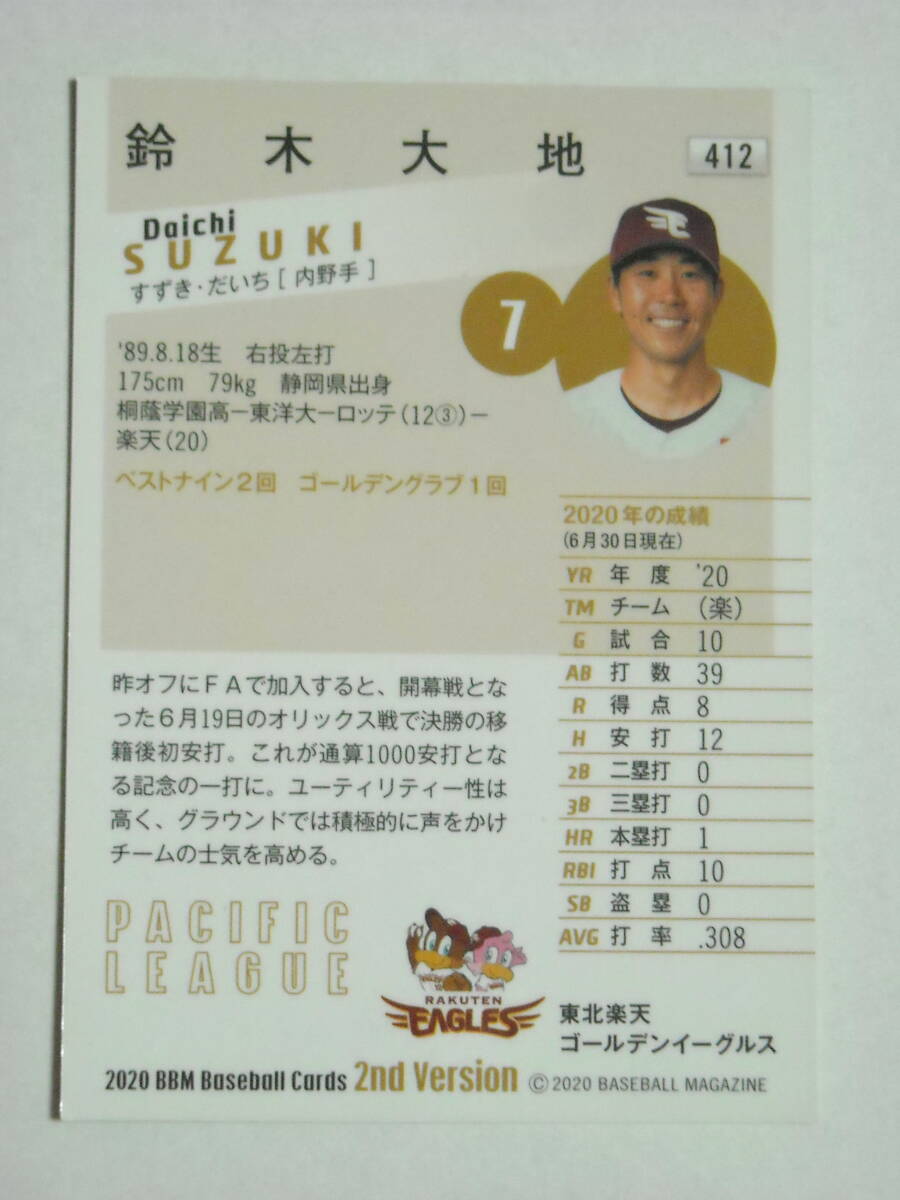 鈴木大地
412
Daichi
SUZUKI
すずき・だいち［内野手］
7
'89.8.18生　右投左打
175cm　79kg　静岡県出身
桐蔭学園高ー東洋大ーロッテ(12③)ー
楽天(20)
ベストナイン2回　ゴールデングラブ1回
2020年の成績
(6月30日現在)
YR 年度 '20
TM チーム (楽)
G 試合 10
AB 打数 39
R 得点 8
H 安打 12
2B 二塁打 0
3B 三塁打 0
HR 本塁打 1
RBI 打点 10
SB 盗塁 0
AVG 打率 .308
昨オフにFAで加入すると、開幕戦とな
った6月19日のオリックス戦で決勝の移
籍後初安打。これが通算1000安打とな
る記念の一打に。ユーティリティー性は
高く、グラウンドでは積極的に声をかけ
チームの士気を高める。
PACIFIC
LEAGUE
RAKUTEN
EAGLES
東北楽天
ゴールデンイーグルス
2020 BBM Baseball Cards 2nd Version ©2020 BASEBALL MAGAZINE